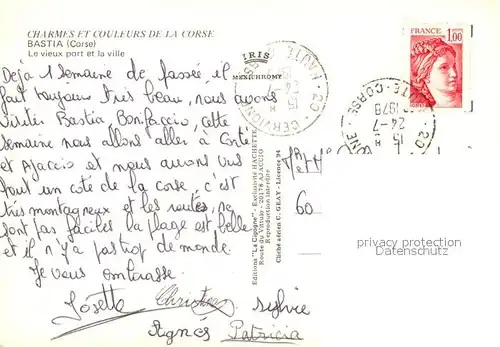 CHARMES ET COULEURS DE LA CORSE
BASTIA (Corse)
Le vieux port et la ville
Déjà 1 semaine de passée, il
fait toujours très beau, nous avons
visiter Bastia Bonifaccio, cette
semaine nous allons aller à Corté
et Ajaccio et nous avons vus
tout un coté de la corse, c'est
très montagneux et les routes ne
sont pas faciles la plage est belle
et il n'y a pas trop de monde.
Je vous embrasse.
Josette Christian Sylvie
Agnés Patricia
IRIS
MEXICHROME
Editions "La Cigogne" - Exclusivité HACHETTE
Route du Vittulo - 20178 AJACCIO
Reproduction interdite
Cliché aérien C. GEAY - Licence 94
20 CERVIONE
HAUTE
15 H
24
FRANCE
1,00
TE-CORSE
1978
24-7
15 H
20
IONE
60
privacy protection
Datenschutz